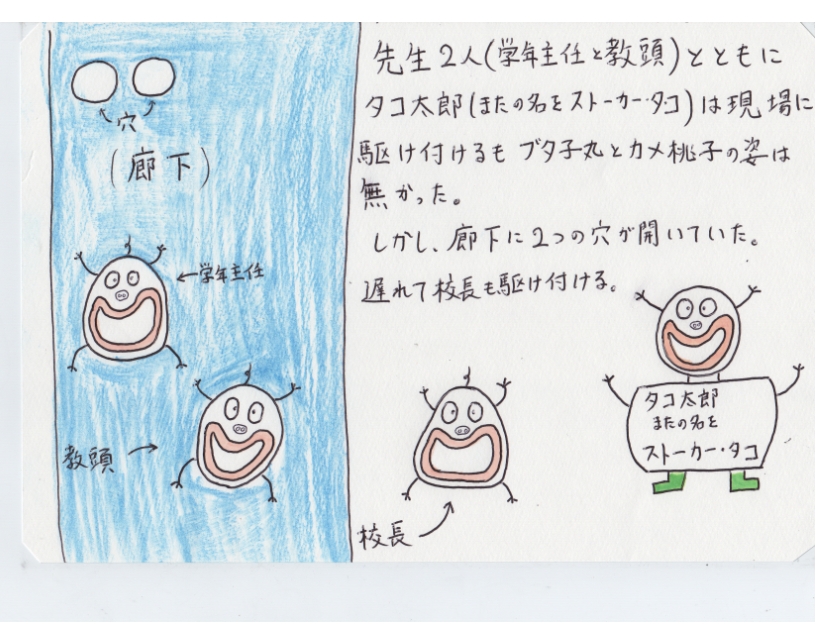 先生2人(学年主任と教頭)とともに
タコ太郎(またの名をストーカー・タコ)は現場に
駆け付けるも ブタ子丸とカメ桃子の姿は
無かった。
しかし、廊下に2つの穴が開いていた。
遅れて校長も駆け付ける。
穴
(廊下)
←学年主任
教頭→
校長
タコ太郎
またの名を
ストーカー・タコ